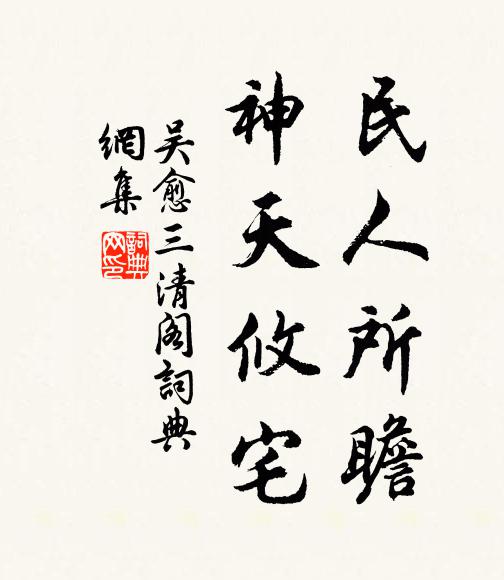 民人所瞻
神天攸宅
吴愈三清阁詞典
網集
詞典
网印